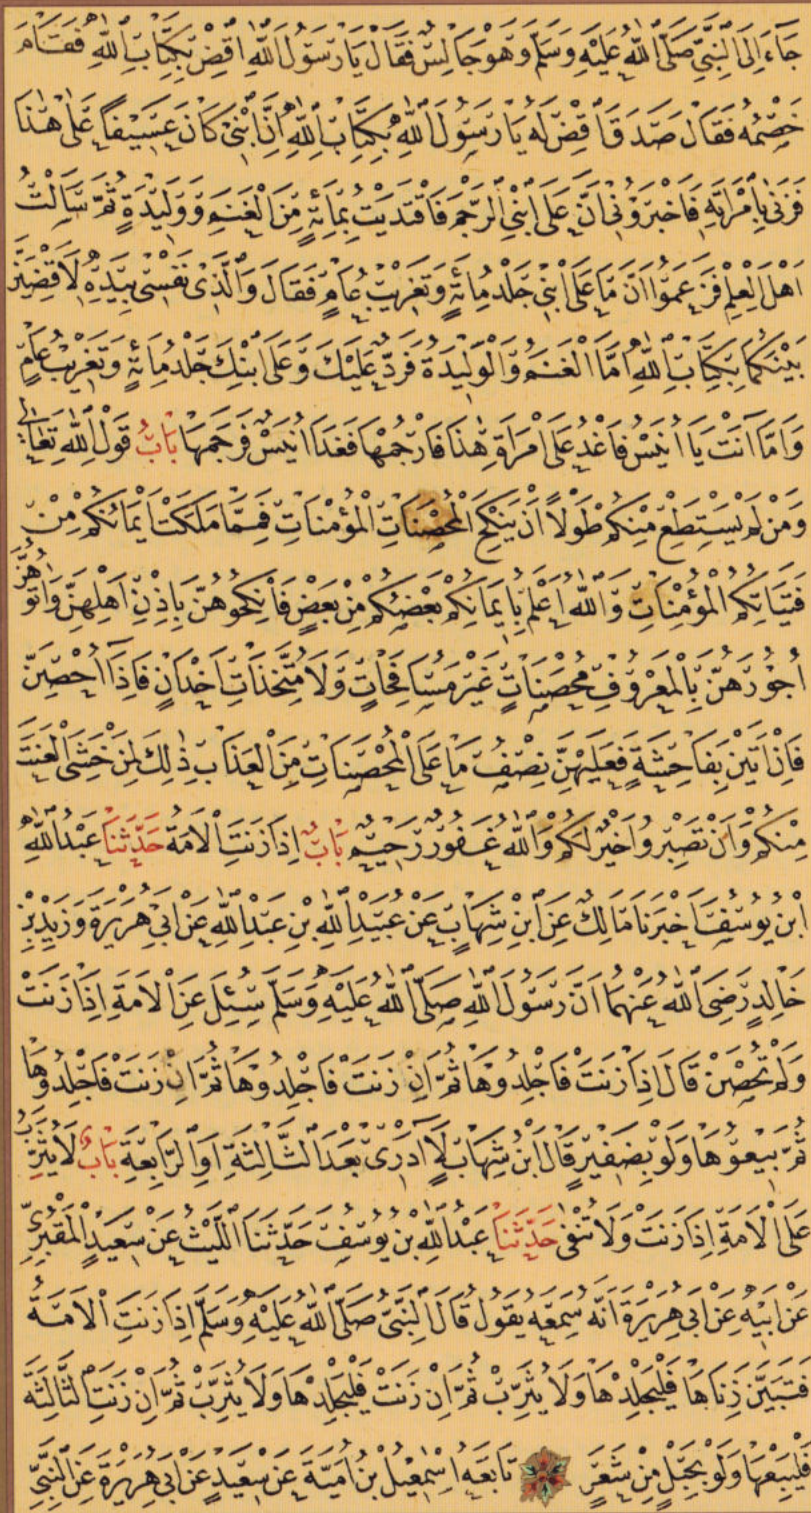 جَاءَ اِلَى النَّبِيِّ صَلَّى اللهُ عَلَيْهِ وَسَلَّمَ وَهُوَ جَالِسٌ فَقَالَ يَا رَسُولَ اللهِ اقْضِ بِكِتَابِ اللهِ فَقَامَ
خَصْمُهُ فَقَالَ صَدَقَ اقْضِ لَهُ يَا رَسُولَ اللهِ بِكِتَابِ اللهِ اِنَّ ابْنِي كَانَ عَسِيفًا عَلَى هٰذَا
فَزَنٰى بِامْرَاَتِهِ فَاَخْبَرُونِي اَنَّ عَلَى ابْنِي الرَّجْمَ فَافْتَدَيْتُ بِمِائَةٍ مِنَ الْغَنَمِ وَوَلِيدَةٍ ثُمَّ سَاَلْتُ
اَهْلَ الْعِلْمِ فَزَعَمُوا اَنَّ مَا عَلَى ابْنِي جَلْدُ مِائَةٍ وَتَغْرِيبُ عَامٍ فَقَالَ وَالَّذِي نَفْسِي بِيَدِهِ لَاَقْضِيَنَّ
بَيْنَكُمَا بِكِتَابِ اللهِ اَمَّا الْغَنَمُ وَالْوَلِيدَةُ فَرَدٌّ عَلَيْكَ وَعَلَى ابْنِكَ جَلْدُ مِائَةٍ وَتَغْرِيبُ عَامٍ
وَاَمَّا اَنْتَ يَا اُنَيْسُ فَاغْدُ عَلَى امْرَاَةِ هٰذَا فَارْجُمْهَا فَغَدَا اُنَيْسٌ فَرَجَمَهَا بَابُ قَوْلِ اللهِ تَعَالٰى
وَمَنْ لَمْ يَسْتَطِعْ مِنْكُمْ طَوْلًا اَنْ يَنْكِحَ الْمُحْصَنَاتِ الْمُؤْمِنَاتِ فَمِمَّا مَلَكَتْ اَيْمَانُكُمْ مِنْ
فَتَيَاتِكُمُ الْمُؤْمِنَاتِ وَاللهُ اَعْلَمُ بِاِيمَانِكُمْ بَعْضُكُمْ مِنْ بَعْضٍ فَانْكِحُوهُنَّ بِاِذْنِ اَهْلِهِنَّ وَاٰتُوهُنَّ
اُجُورَهُنَّ بِالْمَعْرُوفِ مُحْصَنَاتٍ غَيْرَ مُسَافِحَاتٍ وَلَا مُتَّخِذَاتِ اَخْدَانٍ فَاِذَا اُحْصِنَّ
فَاِنْ اَتَيْنَ بِفَاحِشَةٍ فَعَلَيْهِنَّ نِصْفُ مَا عَلَى الْمُحْصَنَاتِ مِنَ الْعَذَابِ ذٰلِكَ لِمَنْ خَشِيَ الْعَنَتَ
مِنْكُمْ وَاَنْ تَصْبِرُوا خَيْرٌ لَكُمْ وَاللهُ غَفُورٌ رَحِيمٌ بَابٌ اِذَا زَنَتِ الْاَمَةُ حَدَّثَنَا عَبْدُ اللهِ
ابْنُ يُوسُفَ اَخْبَرَنَا مَالِكٌ عَنِ ابْنِ شِهَابٍ عَنْ عُبَيْدِ اللهِ بْنِ عَبْدِ اللهِ عَنْ اَبِي هُرَيْرَةَ وَزَيْدِ بْنِ
خَالِدٍ رَضِيَ اللهُ عَنْهُمَا اَنَّ رَسُولَ اللهِ صَلَّى اللهُ عَلَيْهِ وَسَلَّمَ سُئِلَ عَنِ الْاَمَةِ اِذَا زَنَتْ
وَلَمْ تُحْصَنْ قَالَ اِذَا زَنَتْ فَاجْلِدُوهَا ثُمَّ اِنْ زَنَتْ فَاجْلِدُوهَا ثُمَّ اِنْ زَنَتْ فَاجْلِدُوهَا
ثُمَّ بِيعُوهَا وَلَوْ بِضَفِيرٍ قَالَ ابْنُ شِهَابٍ لَا اَدْرِي بَعْدَ الثَّالِثَةِ اَوِ الرَّابِعَةِ بَابٌ لَا يُثَرَّبُ
عَلَى الْاَمَةِ اِذَا زَنَتْ وَلَا تُنْفٰى حَدَّثَنَا عَبْدُ اللهِ بْنُ يُوسُفَ حَدَّثَنَا اللَّيْثُ عَنْ سَعِيدٍ الْمَقْبُرِيِّ
عَنْ اَبِيهِ عَنْ اَبِي هُرَيْرَةَ اَنَّهُ سَمِعَهُ يَقُولُ قَالَ النَّبِيُّ صَلَّى اللهُ عَلَيْهِ وَسَلَّمَ اِذَا زَنَتِ الْاَمَةُ
فَتَبَيَّنَ زِنَاهَا فَلْيَجْلِدْهَا وَلَا يُثَرِّبْ ثُمَّ اِنْ زَنَتْ فَلْيَجْلِدْهَا وَلَا يُثَرِّبْ ثُمَّ اِنْ زَنَتِ الثَّالِثَةَ
فَلْيَبِعْهَا وَلَوْ بِحَبْلٍ مِنْ شَعَرٍ تَابَعَهُ اِسْمٰعِيلُ بْنُ اُمَيَّةَ عَنْ سَعِيدٍ عَنْ اَبِي هُرَيْرَةَ عَنِ النَّبِيِّ